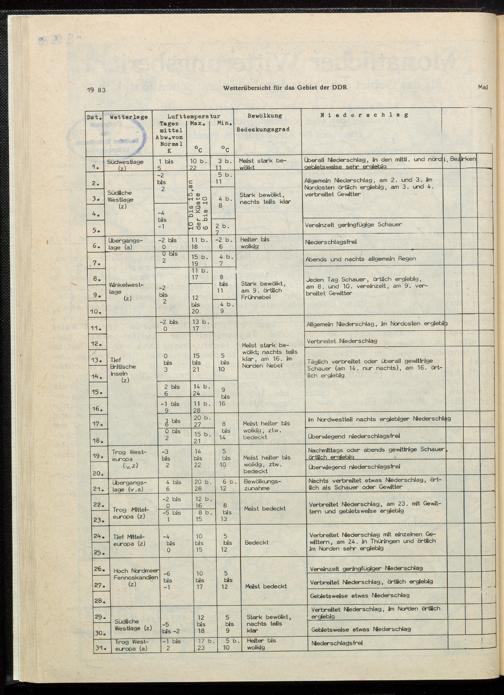 19 83 Wetterübersicht für das Gebiet der DDR Mai
Dat. Wetterlage Lufttemperatur Bewölkung Niederschlag
Tages Max. Min. Bedeckungsgrad
mittel
Abw.von
Normal
K °C °C
1. Südwestlage (z) 1 bis 6 10 b. 22 3 b. 11 Meist stark bewölkt Überall Niederschlag, in den mittl. und nördl. Bezirken
gebietsweise sehr ergiebig
2. -2 bis 2 5 b. 11 Allgemein Niederschlag, am 2. und 3. im
Nordosten örtlich ergiebig, am 3. und 4.
verbreitet Gewitter
3. Südliche Westlage (z) 10 bis 15, an der Küste 6 bis 10 4 b. 8 Stark bewölkt, nachts teils klar
4. -4 bis -1
5. 2 b. 7 Vereinzelt geringfügige Schauer
6. Übergangslage (a) -2 bis 0 11 b. 18 -2 b. 6 Heiter bis wolkig Niederschlagsfrei
7. 0 bis 2 15 b. 19 4 b. 7 Abends und nachts allgemein Regen
8. 11 b. 17 8 bis 11 Jeden Tag Schauer, örtlich ergiebig,
am 8. und 10. vereinzelt, am 9. verbreitet Gewitter
9. Winkelwestlage (z) -2 bis 2 12 bis 20 Stark bewölkt, am 9. örtlich Frühnebel
10. 4 b. 9
11. -2 bis 0 13 b. 17 Allgemein Niederschlag, im Nordosten ergiebig
12. Verbreitet Niederschlag
13. Tief Britische Inseln (z) 0 bis 3 15 bis 21 5 bis 10 Meist stark bewölkt, nachts teils klar, am 16. im Norden Nebel
14. Täglich verbreitet oder überall gewittrige
Schauer (am 14. nur nachts), am 16. örtlich ergiebig
15. 2 bis 6 14 b. 24 9 bis 16
16. -1 bis 9 11 b. 28
17. 20 b. 27 8 bis 14 Meist heiter bis wolkig, ztw. bedeckt Im Nordwestteil nachts ergiebiger Niederschlag
18. 0 bis 2 15 b. 21 Überwiegend niederschlagsfrei
19. Trog Westeuropa -3 bis 2 14 bis 22 5 bis 10 Meist heiter bis wolkig, ztw. bedeckt Nachmittags oder abends gewittrige Schauer,
örtlich ergiebig
20. Überwiegend niederschlagsfrei
21. Übergangslage 4 bis 8 20 b. 28 6 b. 12 Bewölkungszunahme Nachts verbreitet etwas Niederschlag, örtlich als Schauer oder Gewitter
22. Trog Mitteleuropa (z) -2 bis 0 12 b. 16 8 bis 13 Meist bedeckt Verbreitet Niederschlag, am 23. mit Gewittern und gebietsweise ergiebig
23. -5 bis 1 8 b. 15
24. Tief Mitteleuropa (z) -4 bis 0 10 bis 15 5 bis 12 Bedeckt Verbreitet Niederschlag mit einzelnen Gewittern, am 24. in Thüringen und örtlich
im Norden sehr ergiebig
25.
26. Hoch Nordmeer Fennoskandien (z) -6 bis -1 10 bis 17 5 bis 12 Meist bedeckt Vereinzelt geringfügiger Niederschlag
27. Verbreitet Niederschlag, örtlich ergiebig
28. Gebietsweise etwas Niederschlag
29. Südliche Westlage (z) -5 bis -2 12 bis 18 5 bis 9 Stark bewölkt, nachts teils klar Verbreitet Niederschlag, im Norden örtlich
ergiebig
30. Gebietsweise etwas Niederschlag
31. Trog Westeuropa (a) -1 bis 2 17 b. 23 5 b. 10 Heiter bis wolkig Niederschlagsfrei